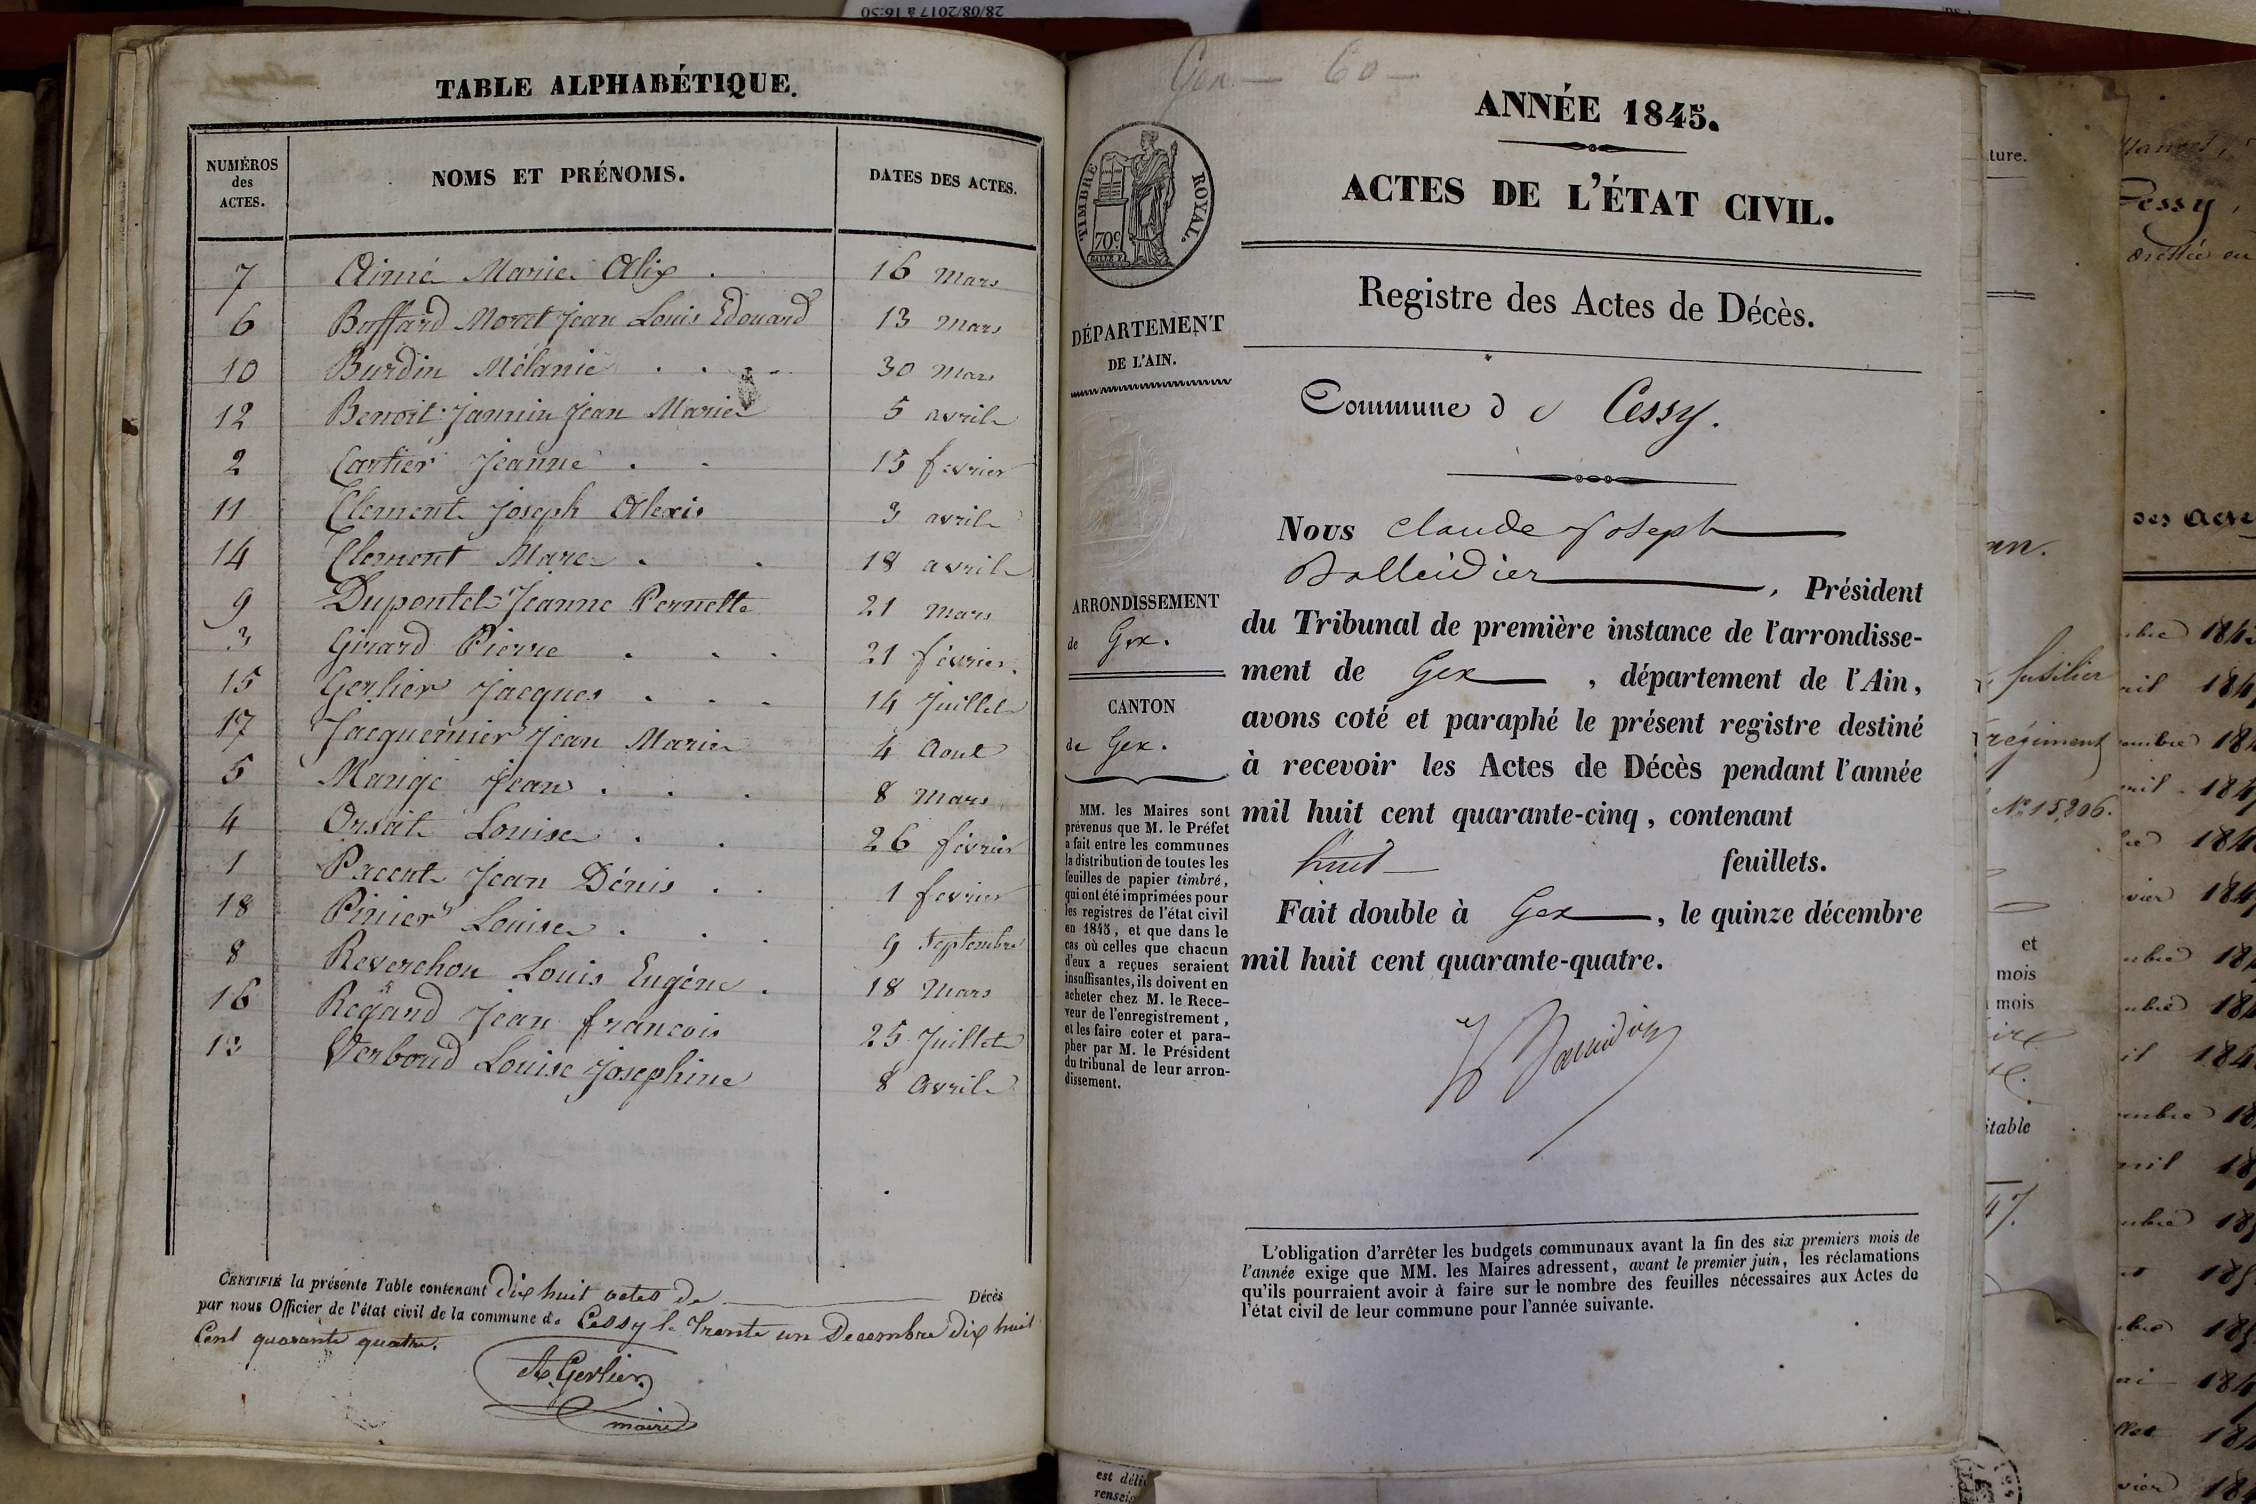 28/08/2017 à 16:50
TABLE ALPHABÉTIQUE.
NUMÉROS
des
ACTES.
NOMS ET PRÉNOMS.
DATES DES ACTES.
7 Aimé Marie Alix . 16 mars
6 Buffard Moret Jean Louis Edouard 13 mars
10 Burdin Mélanie . . . 30 mars
12 Benoit-Jannin Jean Marie 5 avril
2 Cartier Jeanne . . 15 fevrier
11 Clement Joseph Alexis 3 avril
14 Clement Marc . . 18 avril
9 Dupontet Jeanne Pernette 21 mars
3 Girard Pierre . . . 21 février.
15 Gerlier Jacques . . . 14 Juillet
17 Jacquemier Jean Marie 4 Aout
5 Jean . . . 8 mars
4 Orsat Louise . . 26 février
1 Jean Dénis . . 1 fevrier
18 Pinier Louise . . . 9 Septembre
8 Reverchon Louis Eugéne . 18 Mars
16 Regard Jean francois 25 Juillet
13 Verboud Louise Josephine 8 avril
CERTIFIÉ la présente Table contenant dix huit actes de Décès
par nous Officier de l'état civil de la commune de Cessy le Trente un Decembre dix huit
Cent quarante quatre.
A. Gerlier
maire
Gex — 60 —
ANNÉE 1845.
ACTES DE L'ÉTAT CIVIL.
Registre des Actes de Décès.
Commune de Cessy.
TIMBRE ROYAL.
70c
DÉPARTEMENT
DE L'AIN.
ARRONDISSEMENT
de Gex.
CANTON
de Gex.
MM. les Maires sont
prévenus que M. le Préfet
a fait entre les communes
la distribution de toutes les
feuilles de papier timbré,
qui ont été imprimées pour
les registres de l'état civil
en 1845, et que dans le
cas où celles que chacun
d'eux a reçues seraient
insuffisantes, ils doivent en
acheter chez M. le Rece-
veur de l'enregistrement,
et les faire coter et para-
pher par M. le Président
du tribunal de leur arron-
dissement.
Nous Claude Joseph
, Président
du Tribunal de première instance de l'arrondisse-
ment de Gex , département de l'Ain,
avons coté et paraphé le présent registre destiné
à recevoir les Actes de Décès pendant l'année
mil huit cent quarante-cinq, contenant
huit feuillets.
Fait double à Gex , le quinze décembre
mil huit cent quarante-quatre.
L'obligation d'arrêter les budgets communaux avant la fin des six premiers mois de
l'année exige que MM. les Maires adressent, avant le premier juin, les réclamations
qu'ils pourraient avoir à faire sur le nombre des feuilles nécessaires aux Actes de
l'état civil de leur commune pour l'année suivante.
ture.
fusilier
régiment
No 15,206.
et
mois
mois
itable
47.
est déli
renseig